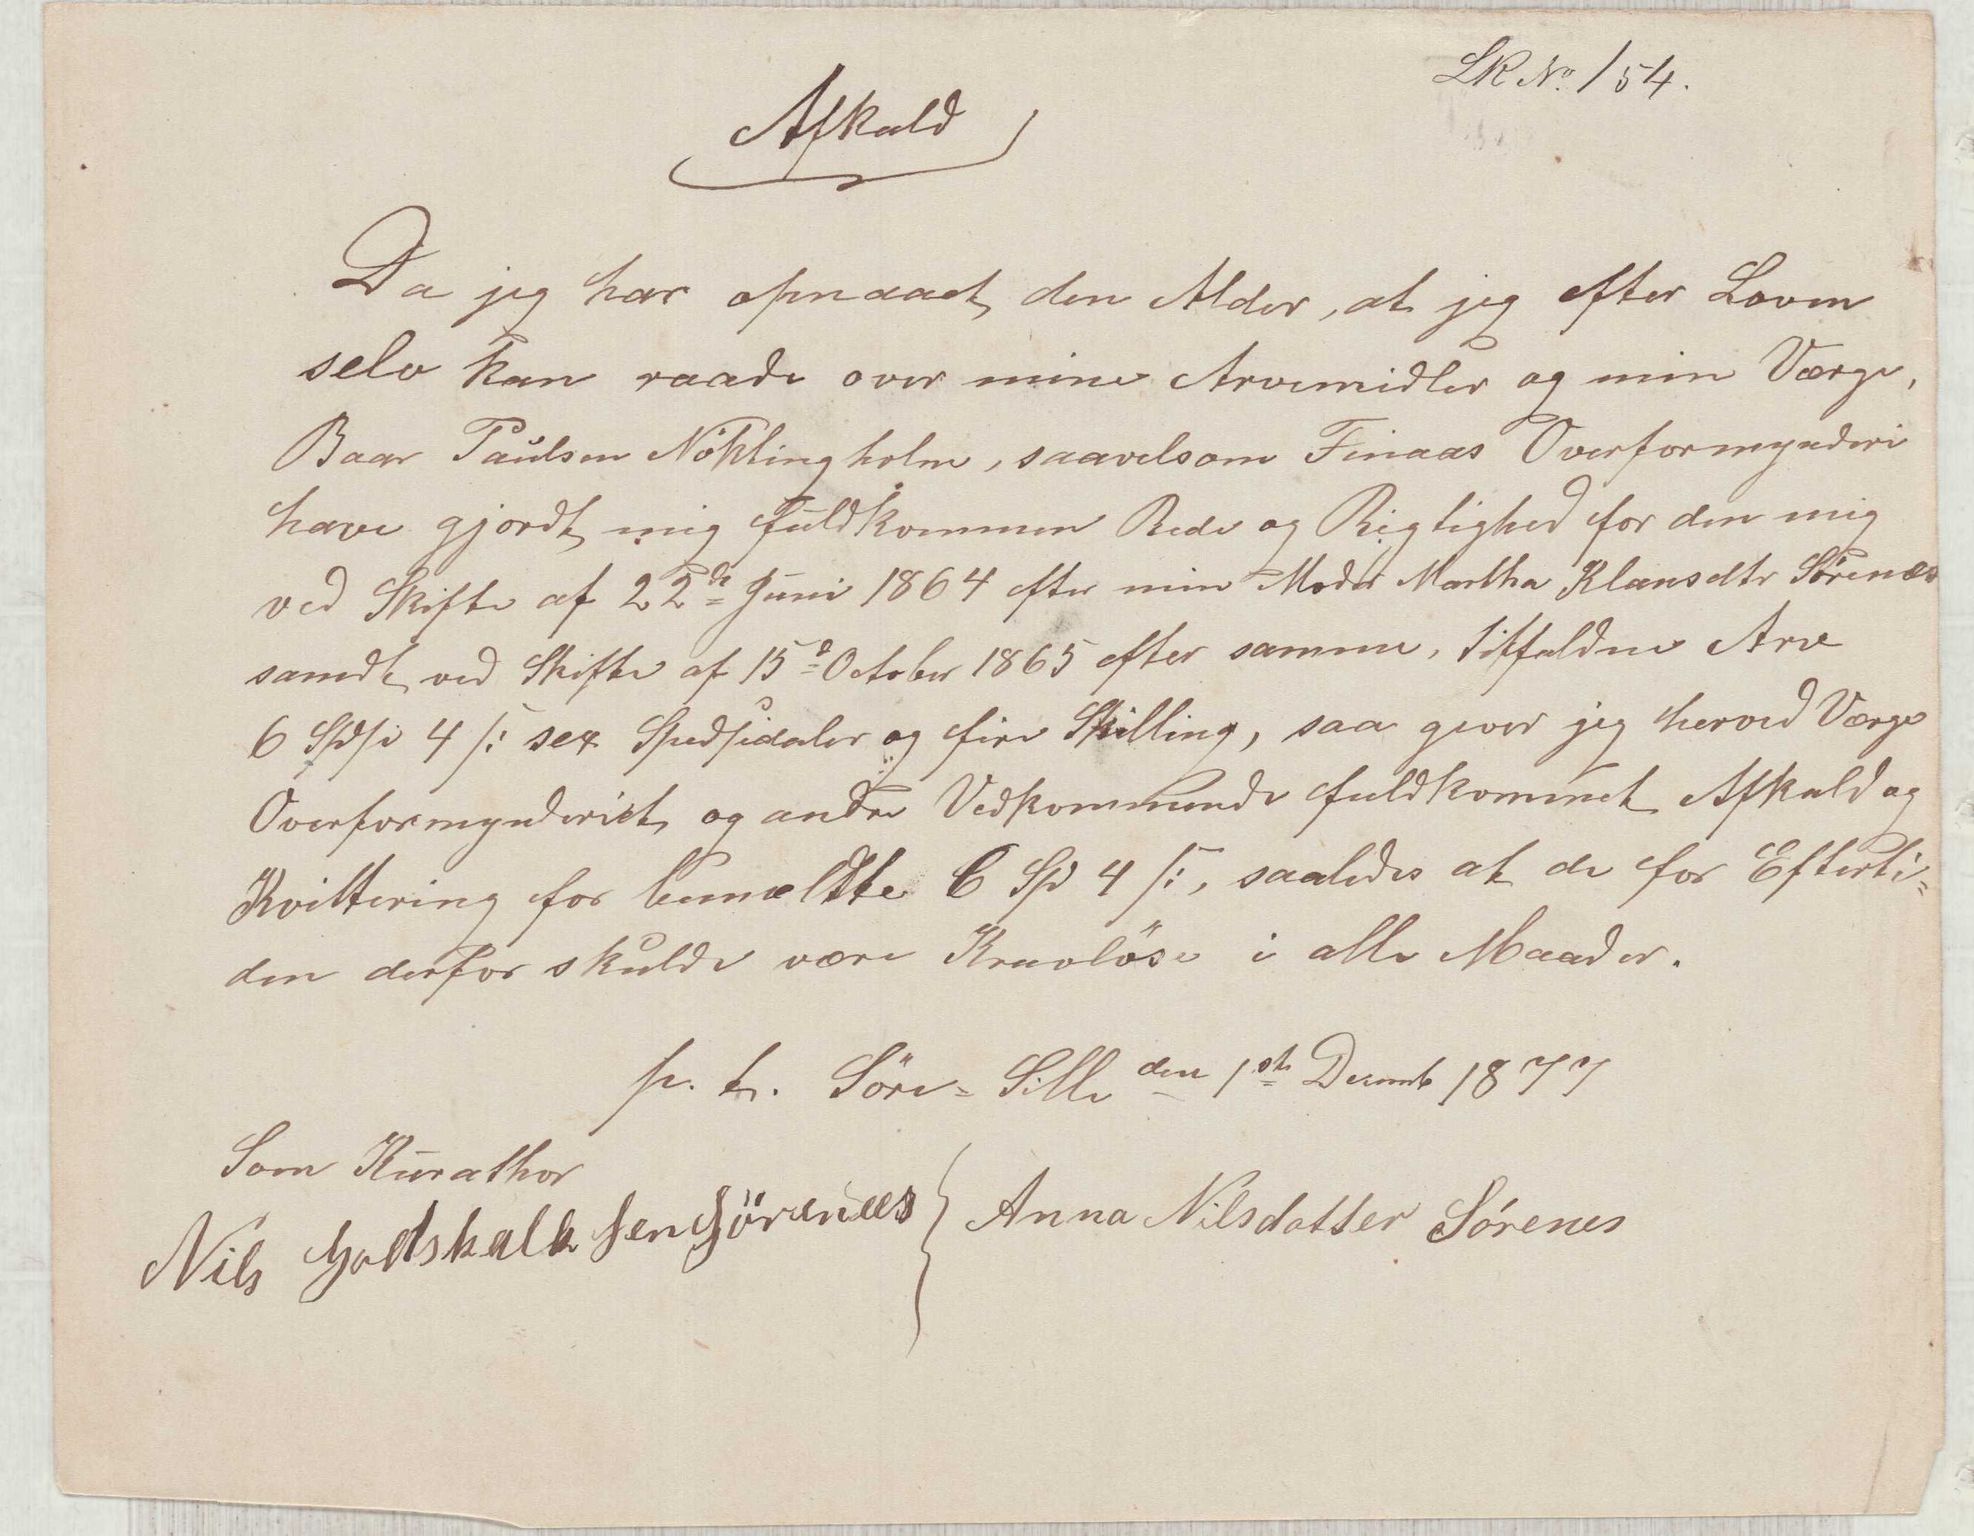 LR No. 154.
Afkald
Da jeg har opnaaet den Alder, at jeg efter Loven
selv kan raade over mine Arvemidler og min Værge,
Baar Paulsen Nöklingholm, saavelsom Finaas Overformynderi
have gjordt mig fuldkommen Rede og Rigtighed for den mig
ved Skifte af 22de Juni 1864 efter min Moder Martha Klausdtr Sörenæs
samdt ved Skifte af 15d October 1865 efter samme, tilfaldne Arv
6 Spd 4 s: sex Spedsidaler og fire Skilling, saa giver jeg herved Værge
Overformynderiet og andre Vedkommende fuldkommet Afkald og
Kvittering for bemældte 6 Sp 4 s:, saaledes at de for Efterti=
den derfor skulde være Kravlöse i alle Maader.
p. t. Söre=Sille den 1st Decemb 1877
Som Kurathor
Nils Godskalksen Sörenæs
Anna Nilsdatter Sörenes